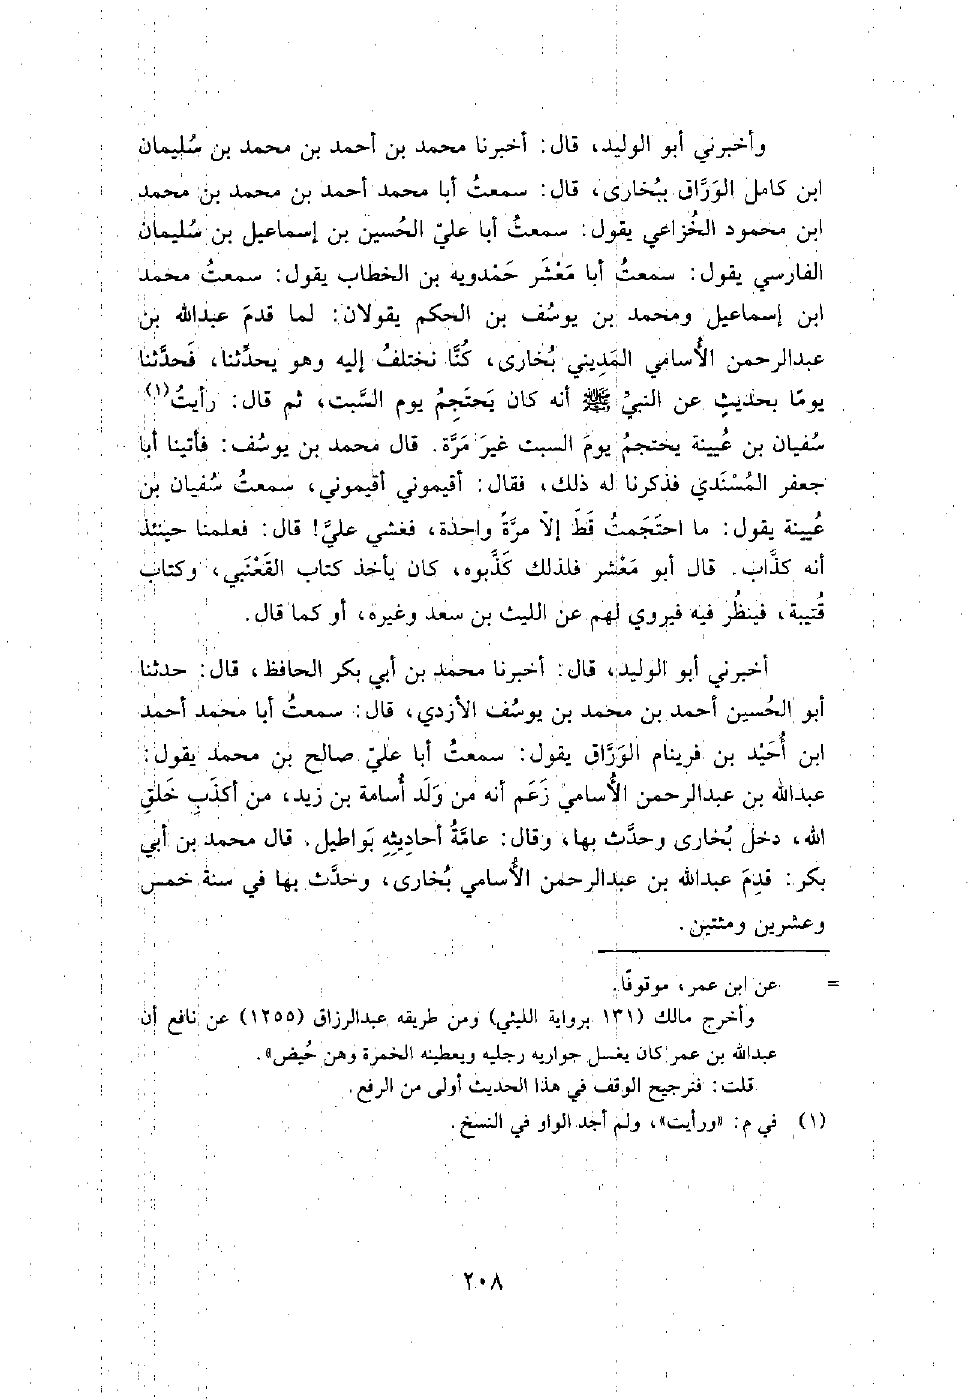 وأخبرني أبو الوليد، قال: أخبرنا محمد بن أحمد بن محمد بن سُليمان
ابن كامل الوَرَّاق ببُخارى، قال: سمعتُ أبا محمد أحمد بن محمد بن محمد
ابن محمود الخُزاعي يقول: سمعتُ أبا عليّ الحُسين بن إسماعيل بن سُليمان
الفارسي يقول: سمعتُ أبا مَعْشَر حَمْدويه بن الخطاب يقول: سمعتُ محمد
ابن إسماعيل ومحمد بن يوسُف بن الحكم يقولان: لما قدمَ عبدالله بن
عبدالرحمن الأُسامي المَديني بُخارى، كُنَّا نختلفُ إليه وهو يحدِّثنا، فَحدَّثنا
يومًا بحديثٍ عن النبيِّ ﷺ أنه كان يَحتَجِمُ يوم السَّبت، ثم قال: رأيتُ(١)
سُفيان بن عُيينة يحتجمُ يومَ السبت غيرَ مَرَّة. قال محمد بن يوسُف: فأتينا أبا
جعفر المُسْنَدي فذكرنا له ذلك، فقال: أقيموني أقيموني، سمعتُ سُفيان بن
عُيينة يقول: ما احتَجَمتُ قَطّ إلّا مرَّةً واحدة، فغشي عليَّ! قال: فعلمنا حينئذ
أنه كذَّاب. قال أبو مَعْشر فلذلك كَذَّبوه، كان يأخذ كتاب القَعْنَبي، وكتاب
قُتيبة، فينظُر فيه فيروي لهم عن الليث بن سعد وغيره، أو كما قال.
أخبرني أبو الوليد، قال: أخبرنا محمد بن أبي بكر الحافظ، قال: حدثنا
أبو الحُسين أحمد بن محمد بن يوسُف الأزدي، قال: سمعتُ أبا محمد أحمد
ابن أُحَيْد بن فرينام الوَرَّاق يقول: سمعتُ أبا عليّ صالح بن محمد يقول:
عبدالله بن عبدالرحمن الأُسامي زَعَم أنه من وَلَد أُسامة بن زيد، من أكذَبِ خَلقِ
الله، دخل بُخارى وحدَّث بها، وقال: عامَّةُ أحاديثِهِ بَواطيل. قال محمد بن أبي
بكر: قدِمَ عبدالله بن عبدالرحمن الأُسامي بُخارى، وحدَّث بها في سنة خمس
وعشرين ومئتين.
= عن ابن عمر، موقوفًا.
وأخرج مالك (١٣١ برواية الليثي) ومن طريقه عبدالرزاق (١٢٥٥) عن نافع أن
عبدالله بن عمر كان يغسل جواريه رجليه ويعطينه الخمرة وهن حُيض».
قلت: فترجيح الوقف في هذا الحديث أولى من الرفع.
(١) في م: «ورأيت»، ولم أجد الواو في النسخ.
٢٠٨